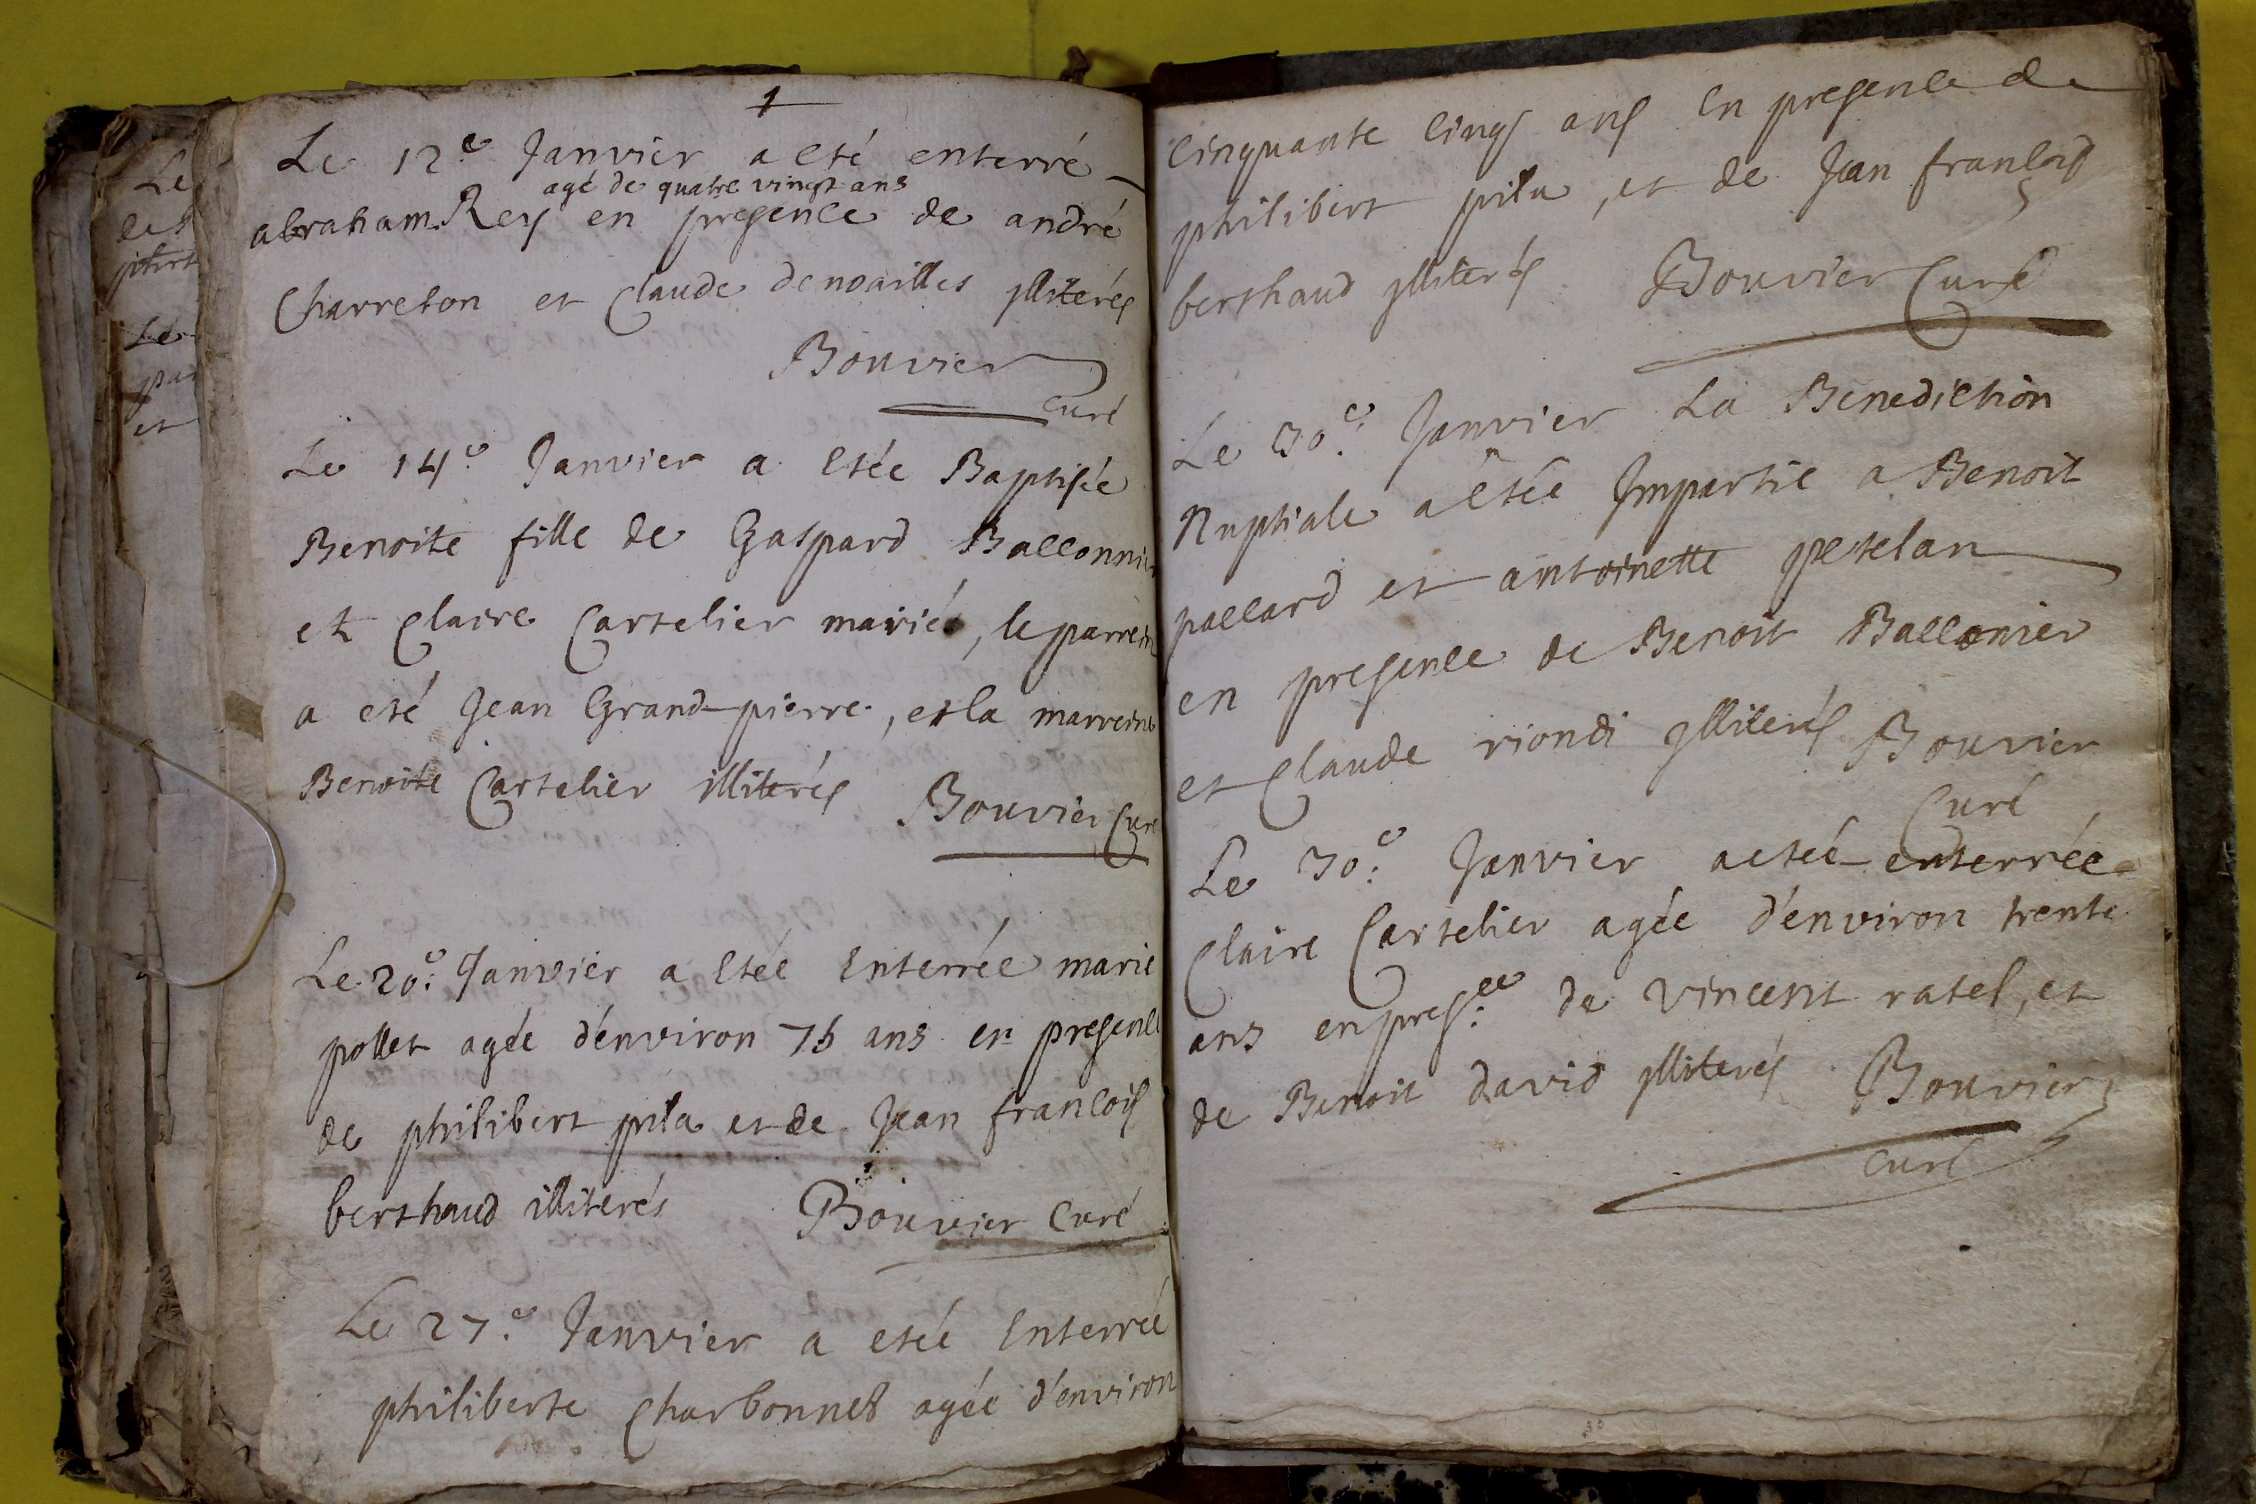 1
Le 12e Janvier a eté enterré
agé de quatre vingt ans
abraham Rey en presence de andré
Charreton et Claude denoailles illiterés
Bouvier
curé
Le 14e Janvier a etée Baptisée
Benoite fille de Gaspard Ballonnier
et Claire Cartelier mariés, le parrein
a eté Jean Grand-pierre, et la marreine
Benoite Cartelier illiterés Bouvier Curé
Le 20e Janvier a etée Enterrée marie
pollet agée d'environ 75 ans en presence
de philibert pila et de Jean francois
berthaud illiterés Bouvier Curé
Le 27e Janvier a etée Enterrée
philiberte Charbonnet agée d'environ
Cinquante Cinq ans En presence de
philibert pila, et de Jean francois
berthaud illiterés Bouvier Curé
Le 30e Janvier La Benediction
Nuptiale a etée Impartie a Benoit
pallard et antoinette petelan
en presence de Benoit Ballonier
et Claude riondi illiterés Bouvier
Curé
Le 30e Janvier a etée enterrée
Claire Cartelier agée d'environ trente
ans en presce de vincent ratel, et
de Benoit david illiterés Bouvier
curé
Le
et